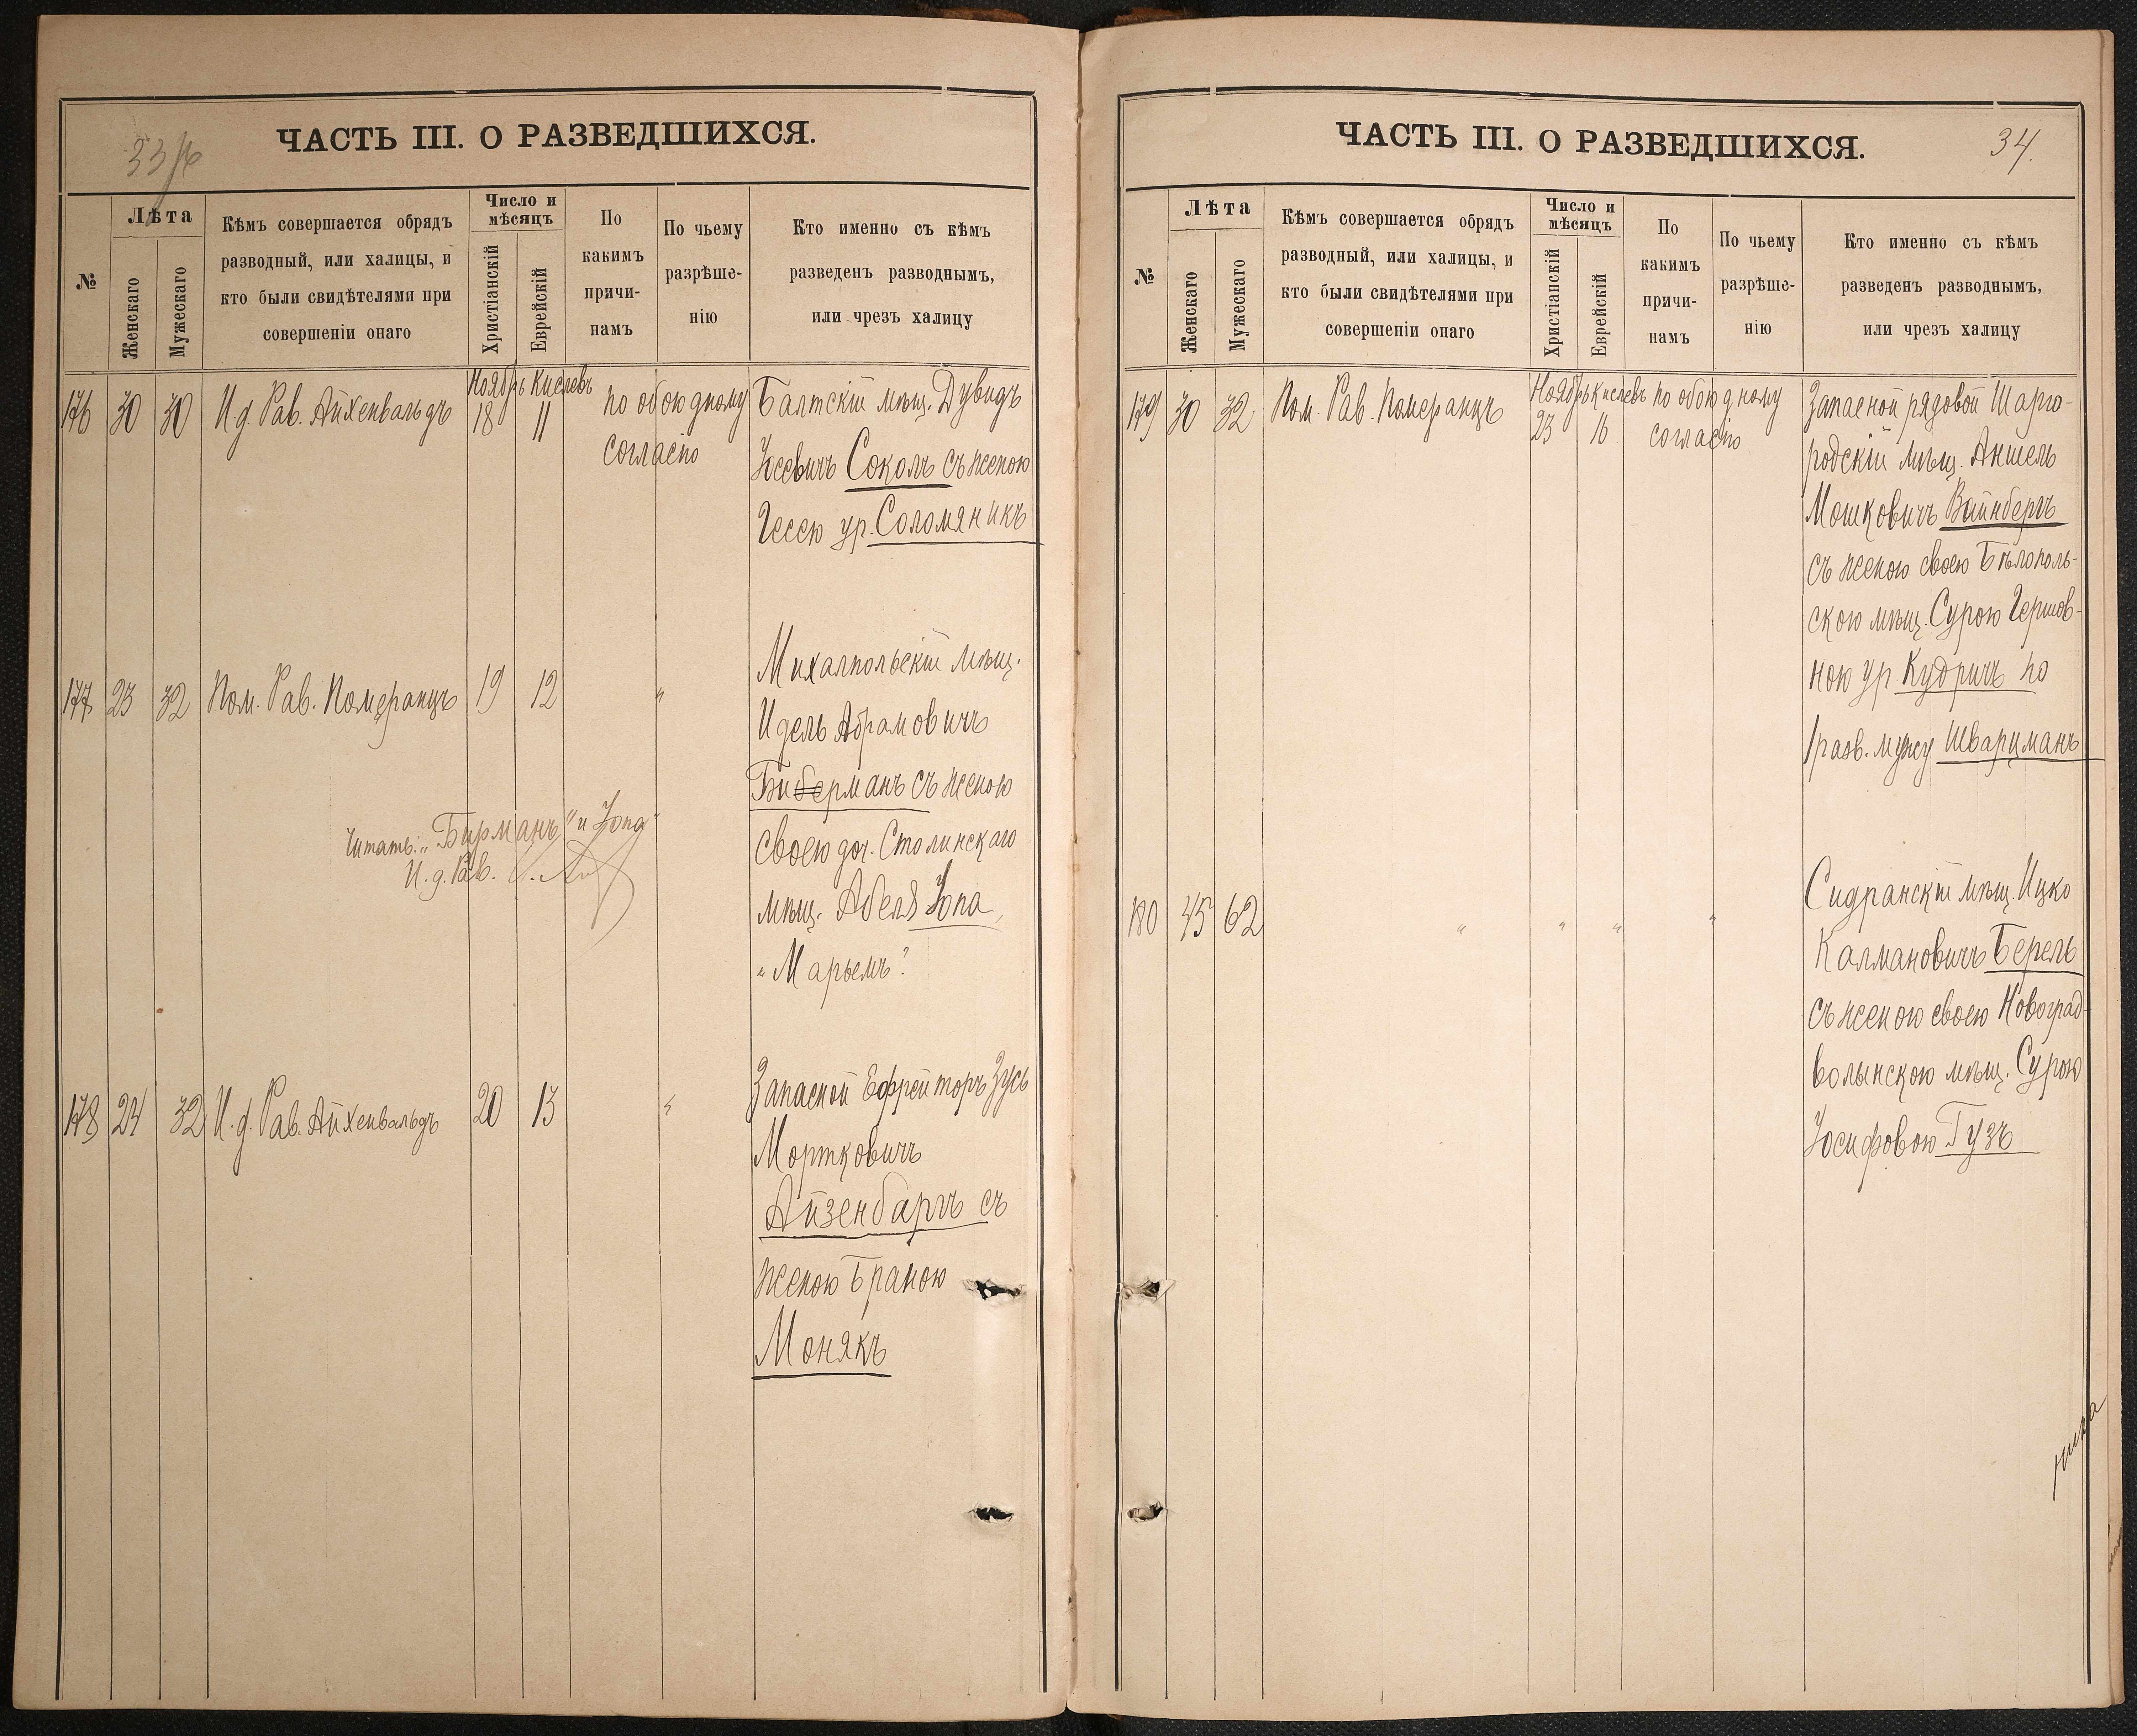 ЧАСТЬ III. О РАЗВЕДШИХСЯ.
№
Лѣта
Женскаго
Мужескаго
Кѣмъ совершается обрядъ
разводный, или халицы, и
кто были свидѣтелями при
совершеніи онаго
Число и
мѣсяцъ
Христіанскій
Еврейскій
По
какимъ
причи-
намъ
По чьему
разрѣше-
нію
Кто именно съ кѣмъ
разведенъ разводнымъ,
или чрезъ халицу
Ноябрь Кислевъ
176 30 30 И.д. Рав. Айхенвальдъ 18 11 по обоюдному Балтскій мѣщ. Дувидъ
согласію Іосевичъ Соколъ съ женою
Гесею ур. Соломяникъ
Михалпольскій мѣщ.
177 23 32 Пом. Рав. Померанцъ 19 12 "
Идель Абрамовичъ
Биберманъ съ женою
Читать: "Бирманъ" и "Іопа"
своею доч. Столинскаго
И.д. Рав.
мѣщ. Абеля Іопа
"Марьемъ"
Запасной Ефрейторъ Зусь
178 24 32 И.д. Рав. Айхенвальдъ 20 13 "
Мортковичъ
Айзенбаргъ съ
женою Браною
Монякъ
ЧАСТЬ III. О РАЗВЕДШИХСЯ.
34.
№
Лѣта
Женскаго
Мужескаго
Кѣмъ совершается обрядъ
разводный, или халицы, и
кто были свидѣтелями при
совершеніи онаго
Число и
мѣсяцъ
Христіанскій
Еврейскій
По
какимъ
причи-
намъ
По чьему
разрѣше-
нію
Кто именно съ кѣмъ
разведенъ разводнымъ,
или чрезъ халицу
Ноябрь Кислевъ
179 30 32 Пом. Рав. Померанцъ 23 16 по обоюдному Запасной рядовой Шарго-
согласію родскій мѣщ. Аншель
Мошковичъ Вайнбергъ
съ женою своею Бѣлополь-
скою мѣщ. Сурою Гершов-
ною ур. Кудричъ по
разв. мужу Шварцманъ
Сидранскій мѣщ. Ицко
180 45 62 " " " "
Калмановичъ Берель
съ женою своею Новоград-
волынскою мѣщ. Сурою
Іосифовою Гузъ